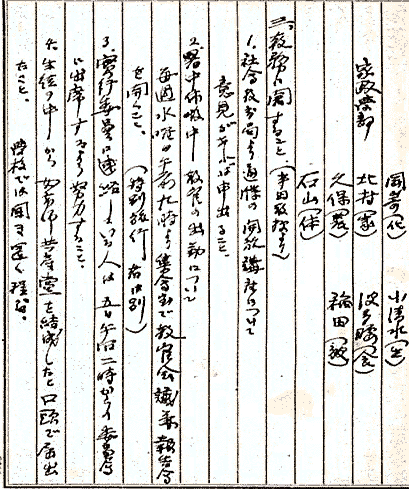 岡崎(化) 小清水(生)
家政学部 北村(家) 波多腰(食)
久保(農) 稲田(歌)
石山(体)
三、教務に関すること(半田教授より)
1. 社会教育局より通牒の開放講座について
意見があれば申出ること、
2. 暑中休暇中教官の出勤について
毎週水曜日午前九時より集会室で教官会議兼報告等
を開くこと、(特別旅行者は別)
3. 実行委員に連絡したい人は五日午后二時からの委員会
に出席するよう努力すること、
4. 生徒の中から
を結成したと口頭で届出
たこと、 学校では聞き置く程度、